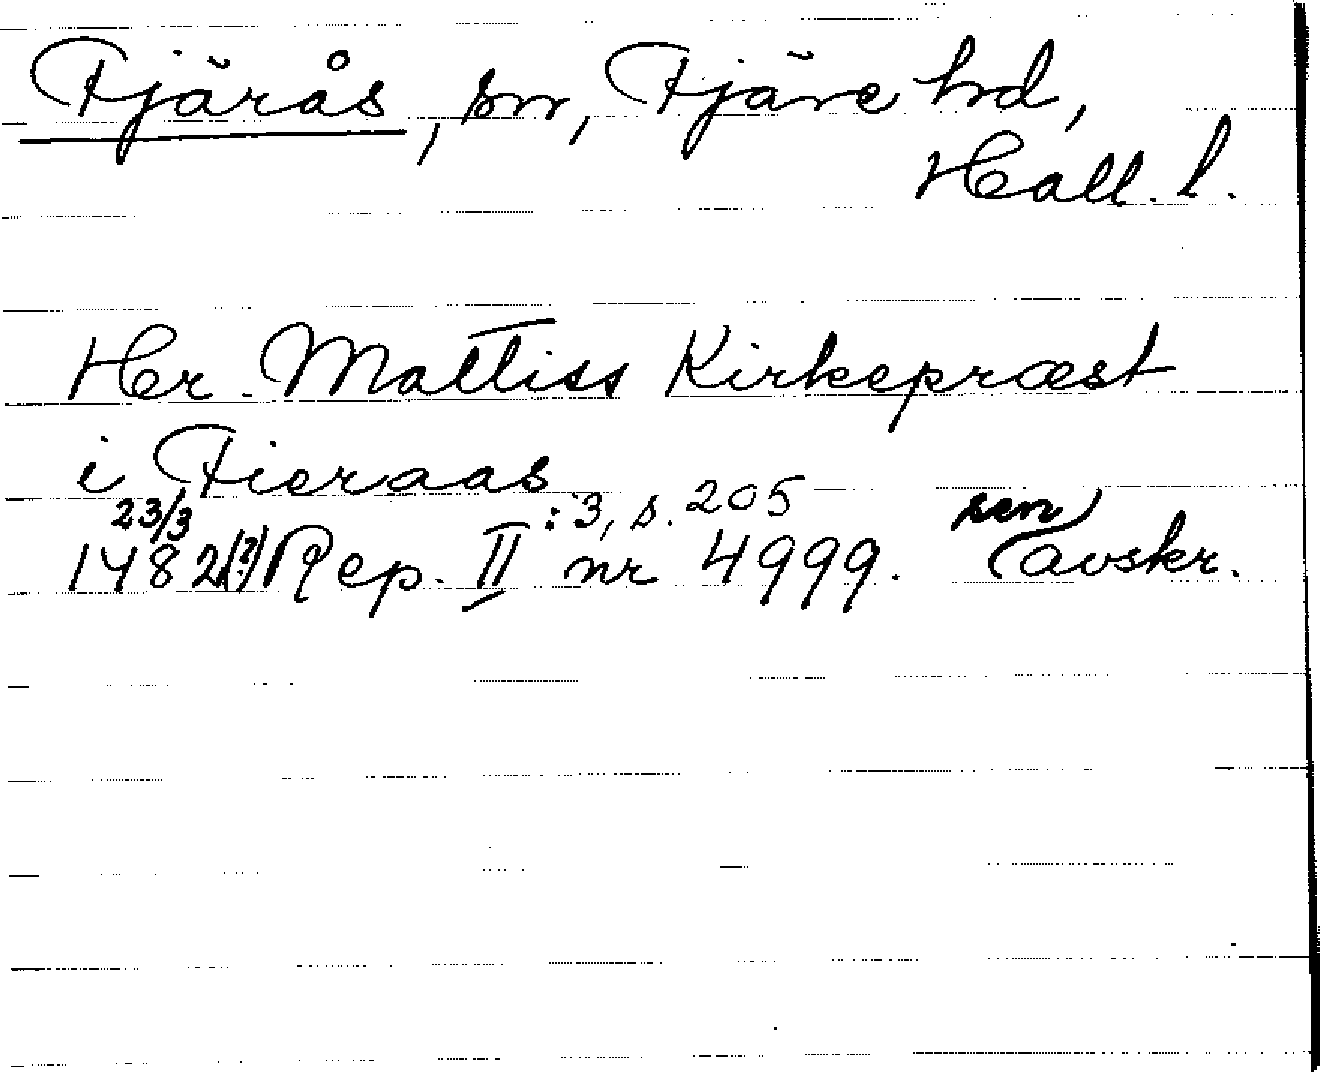 Fjärås, sn, Fjäre hd,
Hall. l.
Her. Mattiss Kirkepræst
i Fieraas
23/3 :3, s. 205 sen
1482(?) Rep. II nr 4999. avskr.